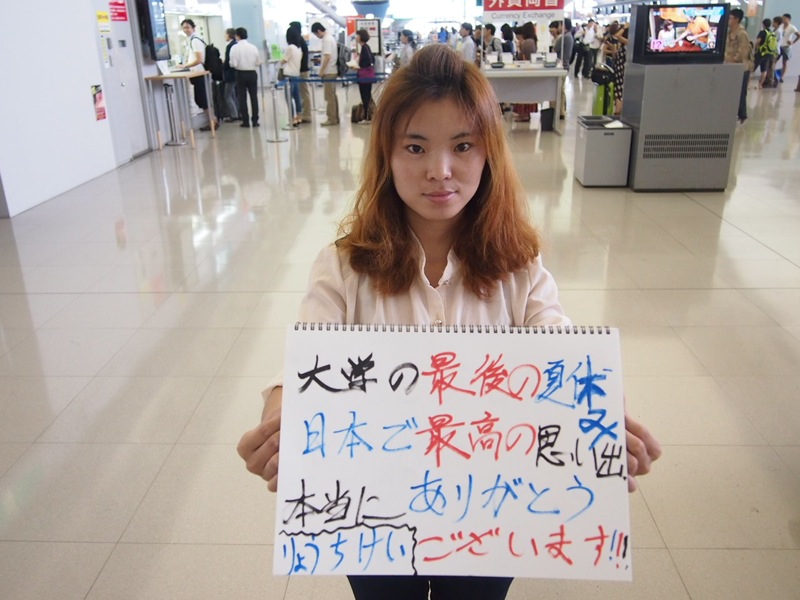 外貨両替
Currency Exchange
大学の最後の夏休み
日本で最高の思い出
本当にありがとう
りょうちけいございます!!!